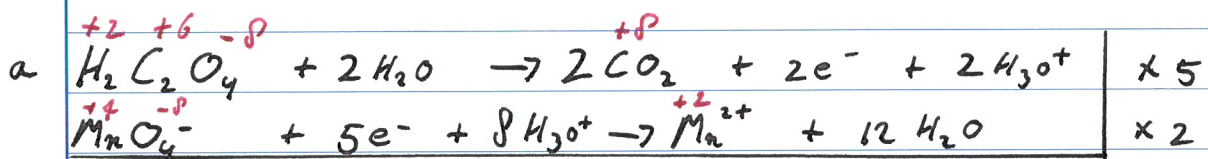 +2 +6 -8 +8
a H₂C₂O₄ + 2H₂O → 2CO₂ + 2e⁻ + 2H₃O⁺ | × 5
+7 -8 +2
MnO₄⁻ + 5e⁻ + 8H₃O⁺ → Mn²⁺ + 12H₂O | × 2